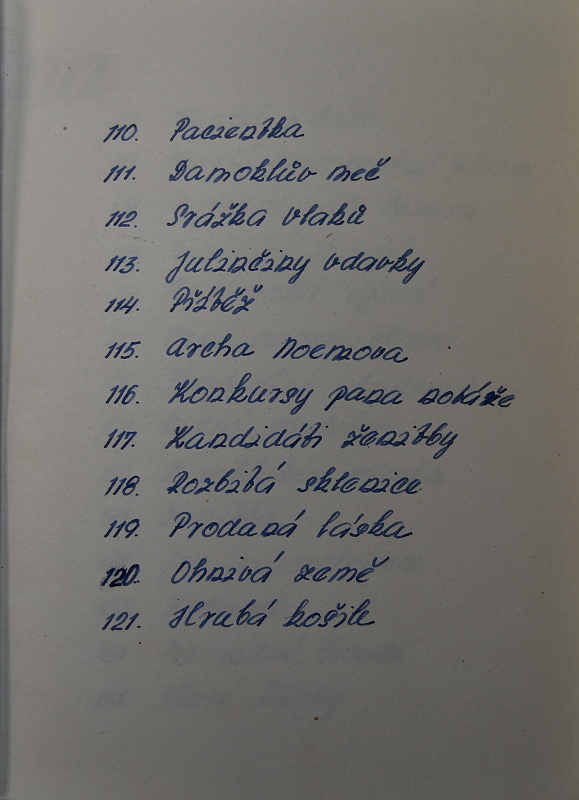 110. Pacientka
111. Damoklův meč
112. Srážka vlaků
113. Julinčiny vdavky
114. Příběž
115. Archa Noemova
116. Konkursy pana notáře
117. Kandidáti ženitby
118. Rozbitá sklenice
119. Prodaná láska
120. Ohnivá země
121. Hrubá košile